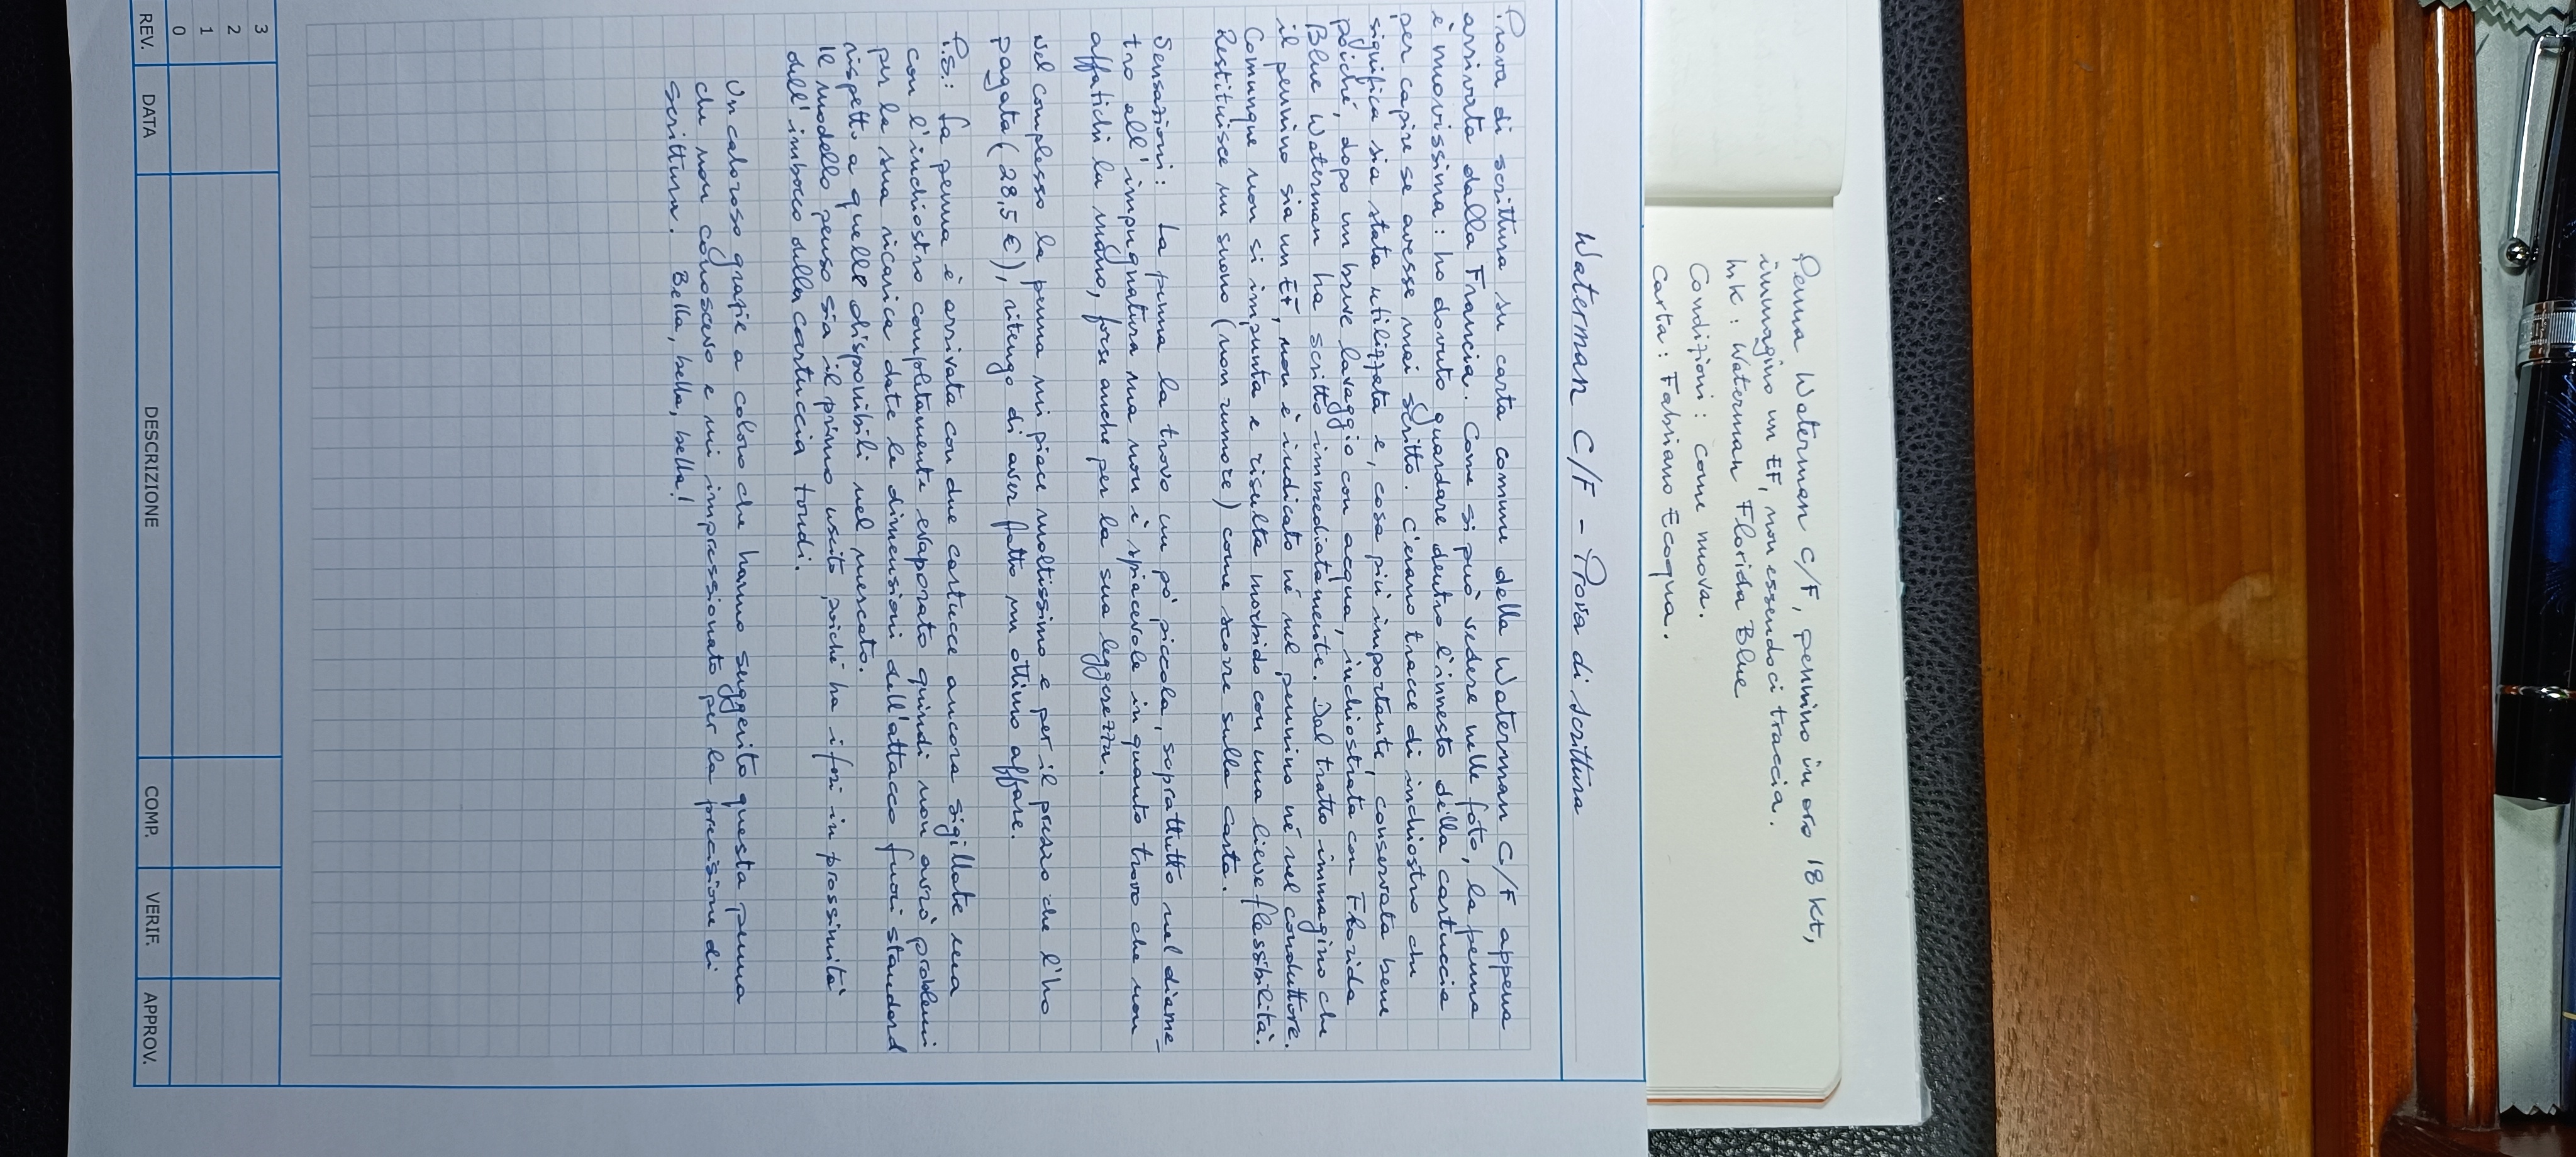 Penna Waterman C/F, pennino in oro 18 Kt,
immagino un EF, non essendoci traccia.
Ink: Waterman Florida Blue
Condizioni: come nuova.
Carta: Fabriano Ecoqua.
Waterman C/F - Prova di scrittura
Prova di scrittura su carta comune della Waterman C/F appena
arrivata dalla Francia. Come si può vedere nelle foto, la penna
è nuovissima: ho dovuto guardare dentro l'innesto della cartuccia
per capire se avesse mai scritto. C'erano tracce di inchiostro che
significa sia stata utilizzata e, cosa più importante, conservata bene
poiché, dopo un breve lavaggio con acqua, inchiostrata con Florida
Blue Waterman ha scritto immediatamente. Dal tratto immagino che
il pennino sia un EF, non è indicato né nel pennino né nel conduttore.
Comunque non si impunta e risulta morbido con una lieve flessibilità.
Restituisce un suono (non rumore) come scorre sulla carta.
Sensazioni: La penna la trovo un pò piccola, soprattutto nel diame-
tro all'impugnatura ma non è spiacevole in quanto trovo che non
affatichi la mano, forse anche per la sua leggerezza.
Nel complesso la penna mi piace moltissimo e per il prezzo che l'ho
pagata (28,5 €), ritengo di aver fatto un ottimo affare.
P.S: la penna è arrivata con due cartucce ancora sigillate ma
con l'inchiostro completamente evaporato quindi non avrò problemi
per la sua ricarica date le dimensioni dell'attacco fuori standard
rispetto a quelle disponibili nel mercato.
Il modello penso sia il primo uscito poiché ha i fori in prossimità
dell'imbocco della cartuccia tondi.
Un caloroso grazie a coloro che hanno suggerito questa penna
che non conoscevo e mi impressionato per la precisione di
scrittura. Bella, bella, bella!
3
2
1
0
REV. DATA DESCRIZIONE COMP. VERIF. APPROV.